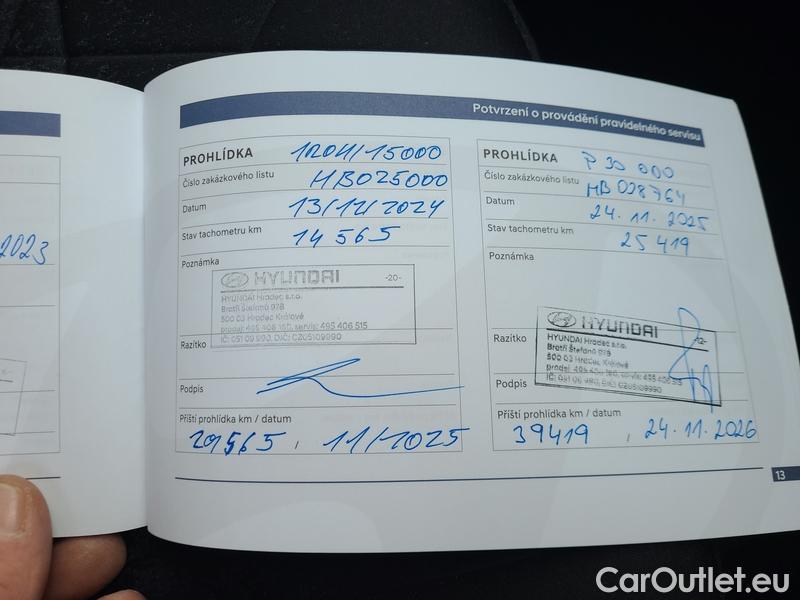 Potvrzení o provádění pravidelného servisu
2023
PROHLÍDKA
Číslo zakázkového listu HB025000
Datum 13/12/2024
Stav tachometru km 14 565
Poznámka
HYUNDAI -20-
HYUNDAI Hradec s.r.o.
Bratří Štefanů 978
500 03 Hradec Králové
prodej: 495 406 160, servis: 495 406 515
IČ: 051 09 990, DIČ: CZ05109990
Razítko
Podpis
Příští prohlídka km / datum
29565 , 11/2025
PROHLÍDKA P 30 000
Číslo zakázkového listu HB028764
Datum 24.11.2025
Stav tachometru km 25 419
Poznámka
HYUNDAI -12-
HYUNDAI Hradec s.r.o.
Bratří Štefanů 978
500 03 Hradec Králové
prodej: 495 406 160, servis: 495 406 515
IČ: 051 09 990, DIČ: CZ05109990
Razítko
Podpis
Příští prohlídka km / datum
39419 , 24.11.2026
13
CarOutlet.eu